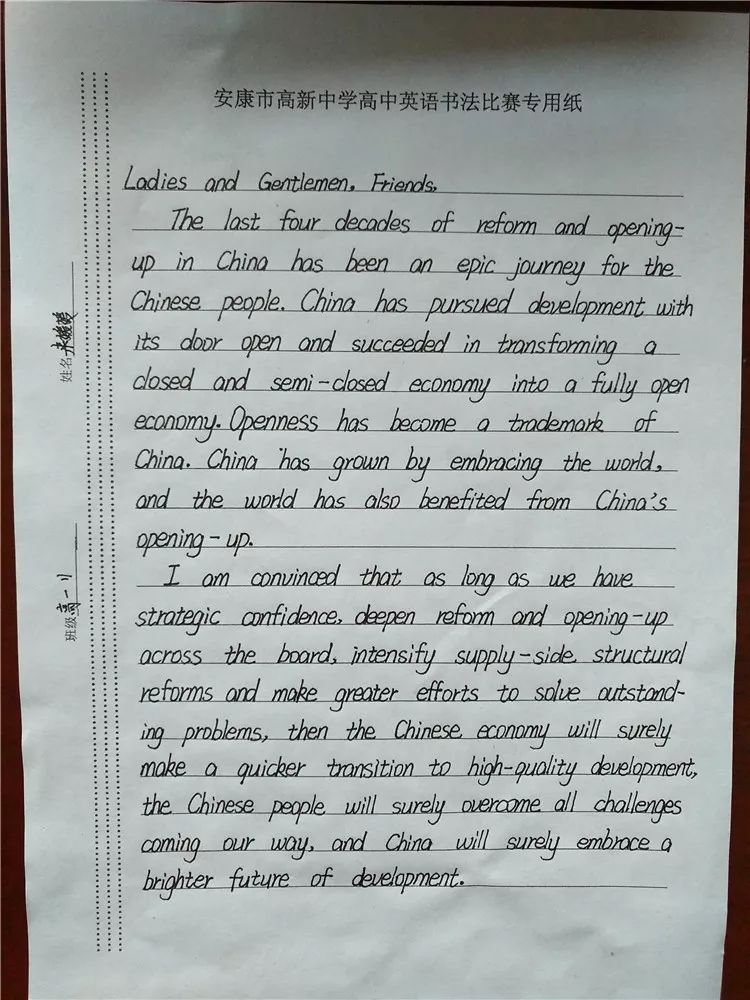 安康市高新中学高中英语书法比赛专用纸
Ladies and Gentlemen, Friends,
The last four decades of reform and opening-
up in China has been an epic journey for the
Chinese people. China has pursued development with
its door open and succeeded in transforming a
closed and semi-closed economy into a fully open
economy. Openness has become a trademark of
China. China has grown by embracing the world,
and the world has also benefited from China's
opening-up.
I am convinced that as long as we have
strategic confidence, deepen reform and opening-up
across the board, intensify supply-side structural
reforms and make greater efforts to solve outstand-
ing problems, then the Chinese economy will surely
make a quicker transition to high-quality development,
the Chinese people will surely overcome all challenges
coming our way, and China will surely embrace a
brighter future of development.
姓名
班级 高一11